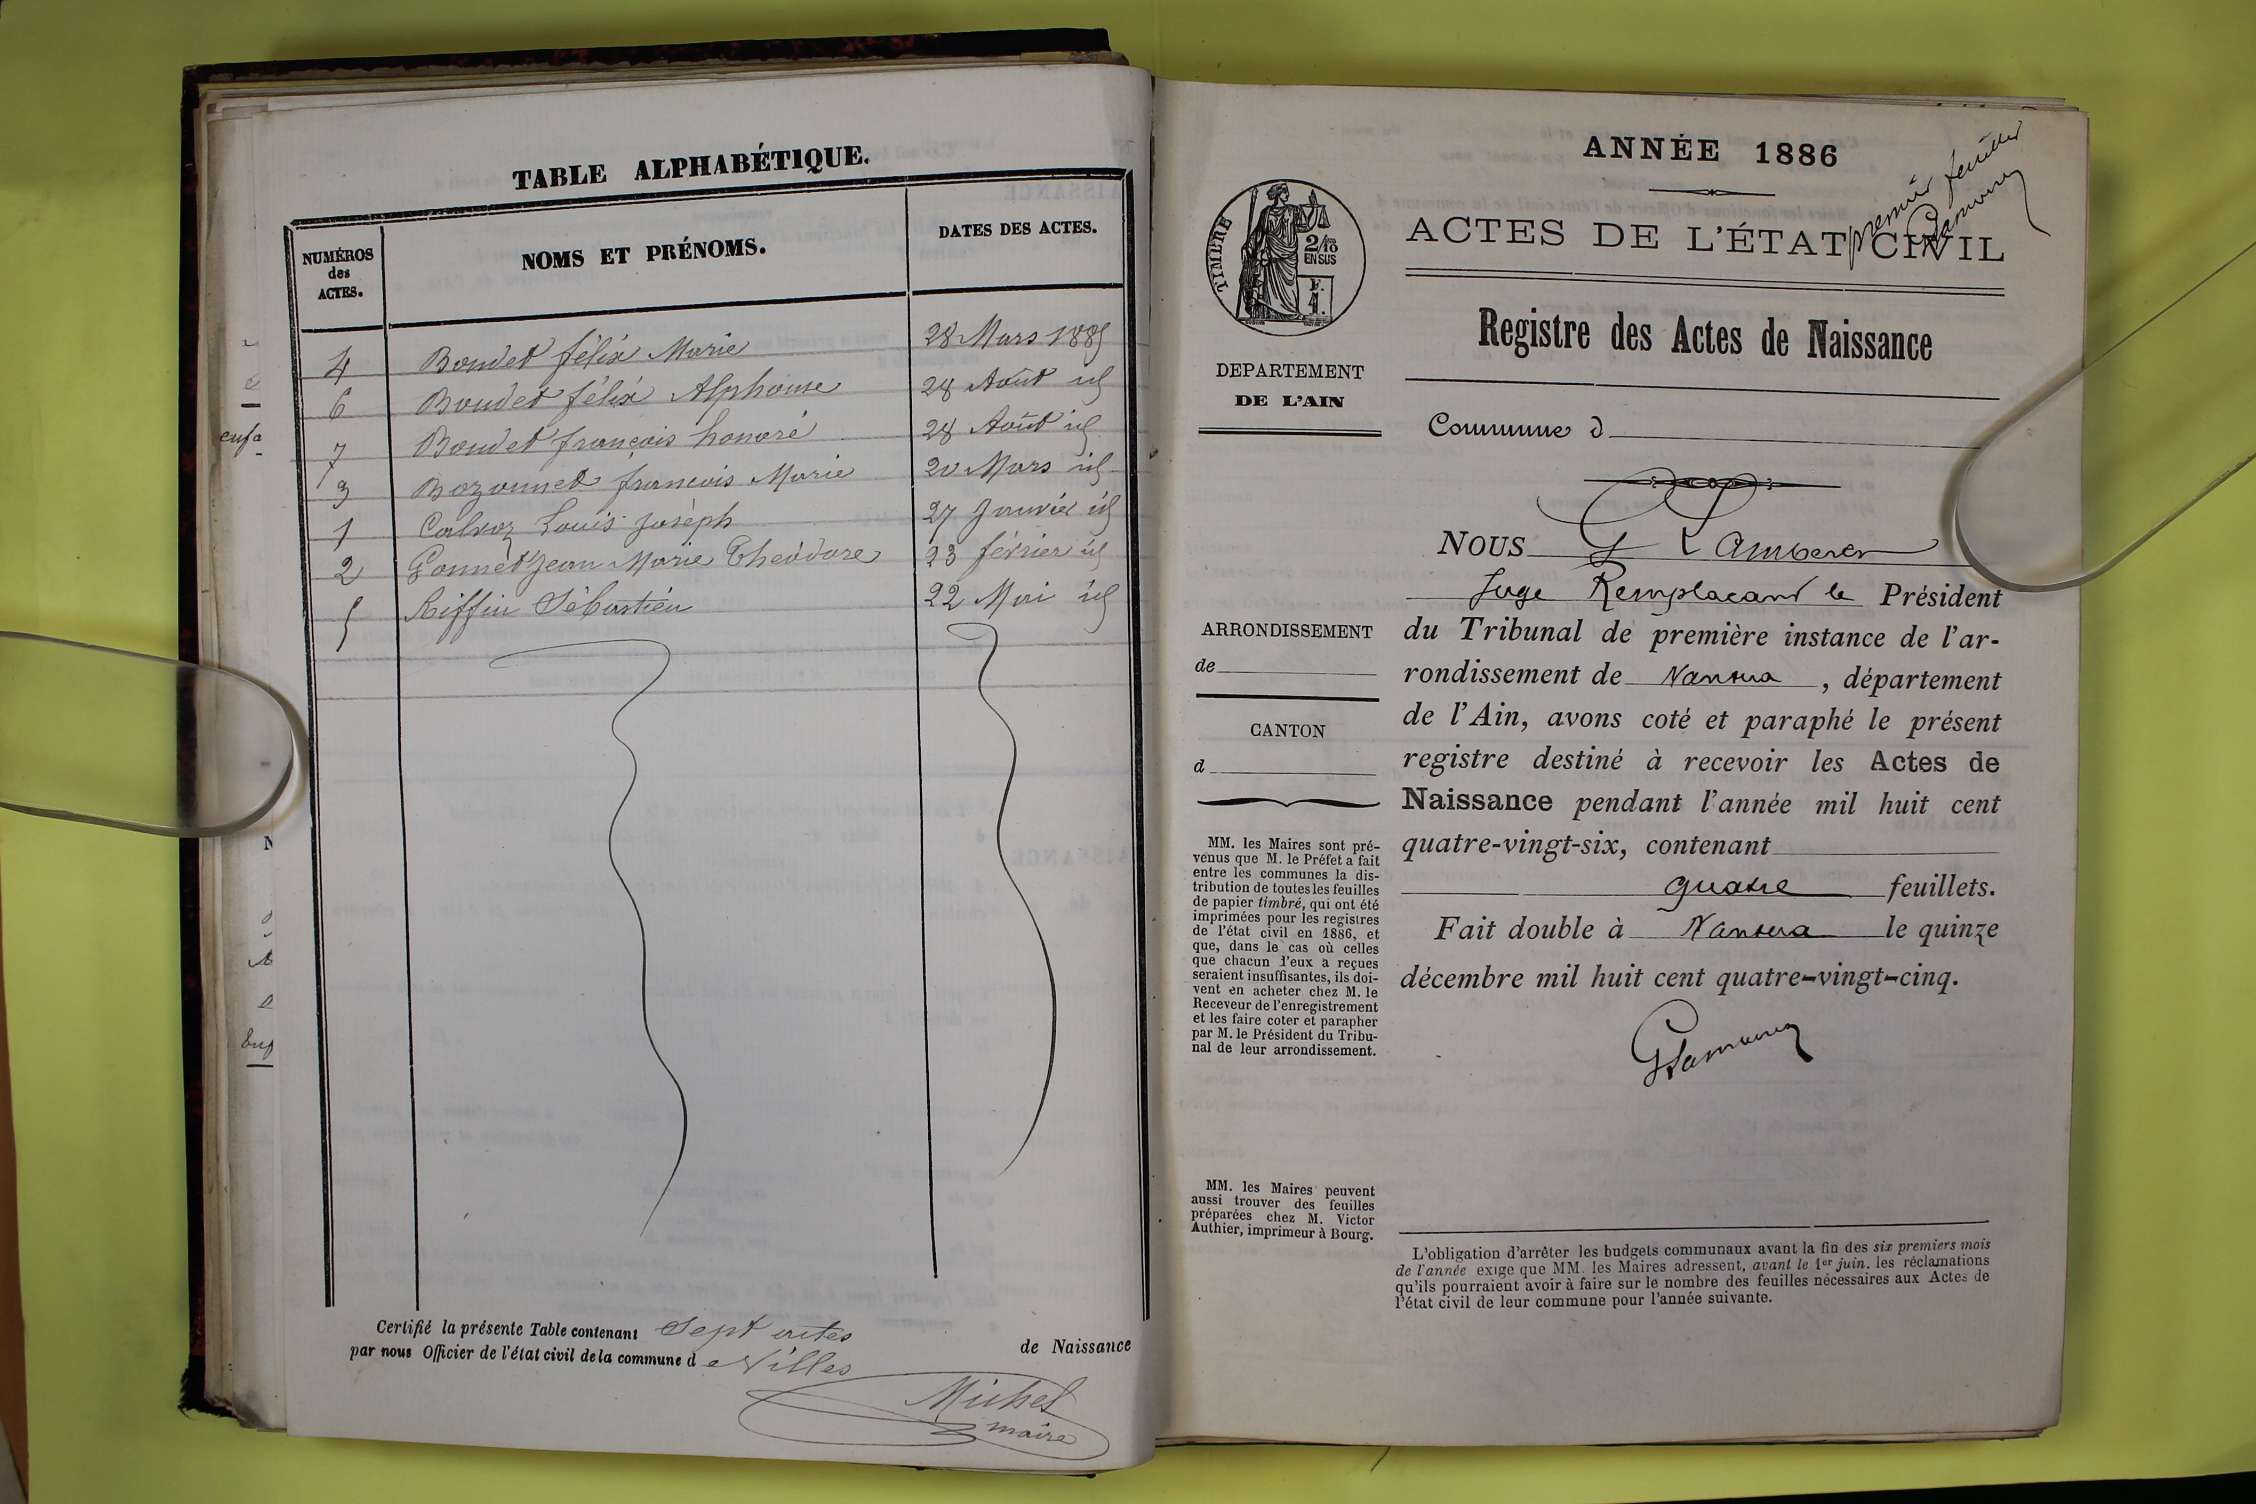 TABLE ALPHABÉTIQUE.
NUMÉROS
des
ACTES.
NOMS ET PRÉNOMS.
DATES DES ACTES.
4 Boudet félix Marie 28 Mars 1885
6 Boudet félix Alphonse 28 Août id
7 Boudet françois honoré 28 Août id
3 Bozonnet françois Marie 20 Mars id
1 Calvoz Louis Joseph 27 Janvier id
2 Gonnet Jean Marie Théodore 23 février id
5 Riffin Sébastien 22 Mai id
Certifié la présente Table contenant Sept actes de Naissance
par nous Officier de l'état civil de la commune d e Villes
Michel
maire
premier feuillet
ANNÉE 1886
ACTES DE L'ÉTAT CIVIL
TIMBRE
2/10
EN SUS
F.
1.
Registre des Actes de Naissance
DEPARTEMENT
DE L'AIN
Commune d
NOUS
Juge Remplacant le Président
du Tribunal de première instance de l'ar-
rondissement de Nantua, département
de l'Ain, avons coté et paraphé le présent
registre destiné à recevoir les Actes de
Naissance pendant l'année mil huit cent
quatre-vingt-six, contenant
quatre feuillets.
Fait double à Nantua le quinze
décembre mil huit cent quatre-vingt-cinq.
ARRONDISSEMENT
de
CANTON
d
MM. les Maires sont pré-
venus que M. le Préfet a fait
entre les communes la dis-
tribution de toutes les feuilles
de papier timbré, qui ont été
imprimées pour les registres
de l'état civil en 1886, et
que, dans le cas où celles
que chacun d'eux a reçues
seraient insuffisantes, ils doi-
vent en acheter chez M. le
Receveur de l'enregistrement
et les faire coter et parapher
par M. le Président du Tribu-
nal de leur arrondissement.
MM. les Maires peuvent
aussi trouver des feuilles
préparées chez M. Victor
Authier, imprimeur à Bourg.
L'obligation d'arrêter les budgets communaux avant la fin des six premiers mois
de l'année exige que MM. les Maires adressent, avant le 1er juin, les réclamations
qu'ils pourraient avoir à faire sur le nombre des feuilles nécessaires aux Actes de
l'état civil de leur commune pour l'année suivante.